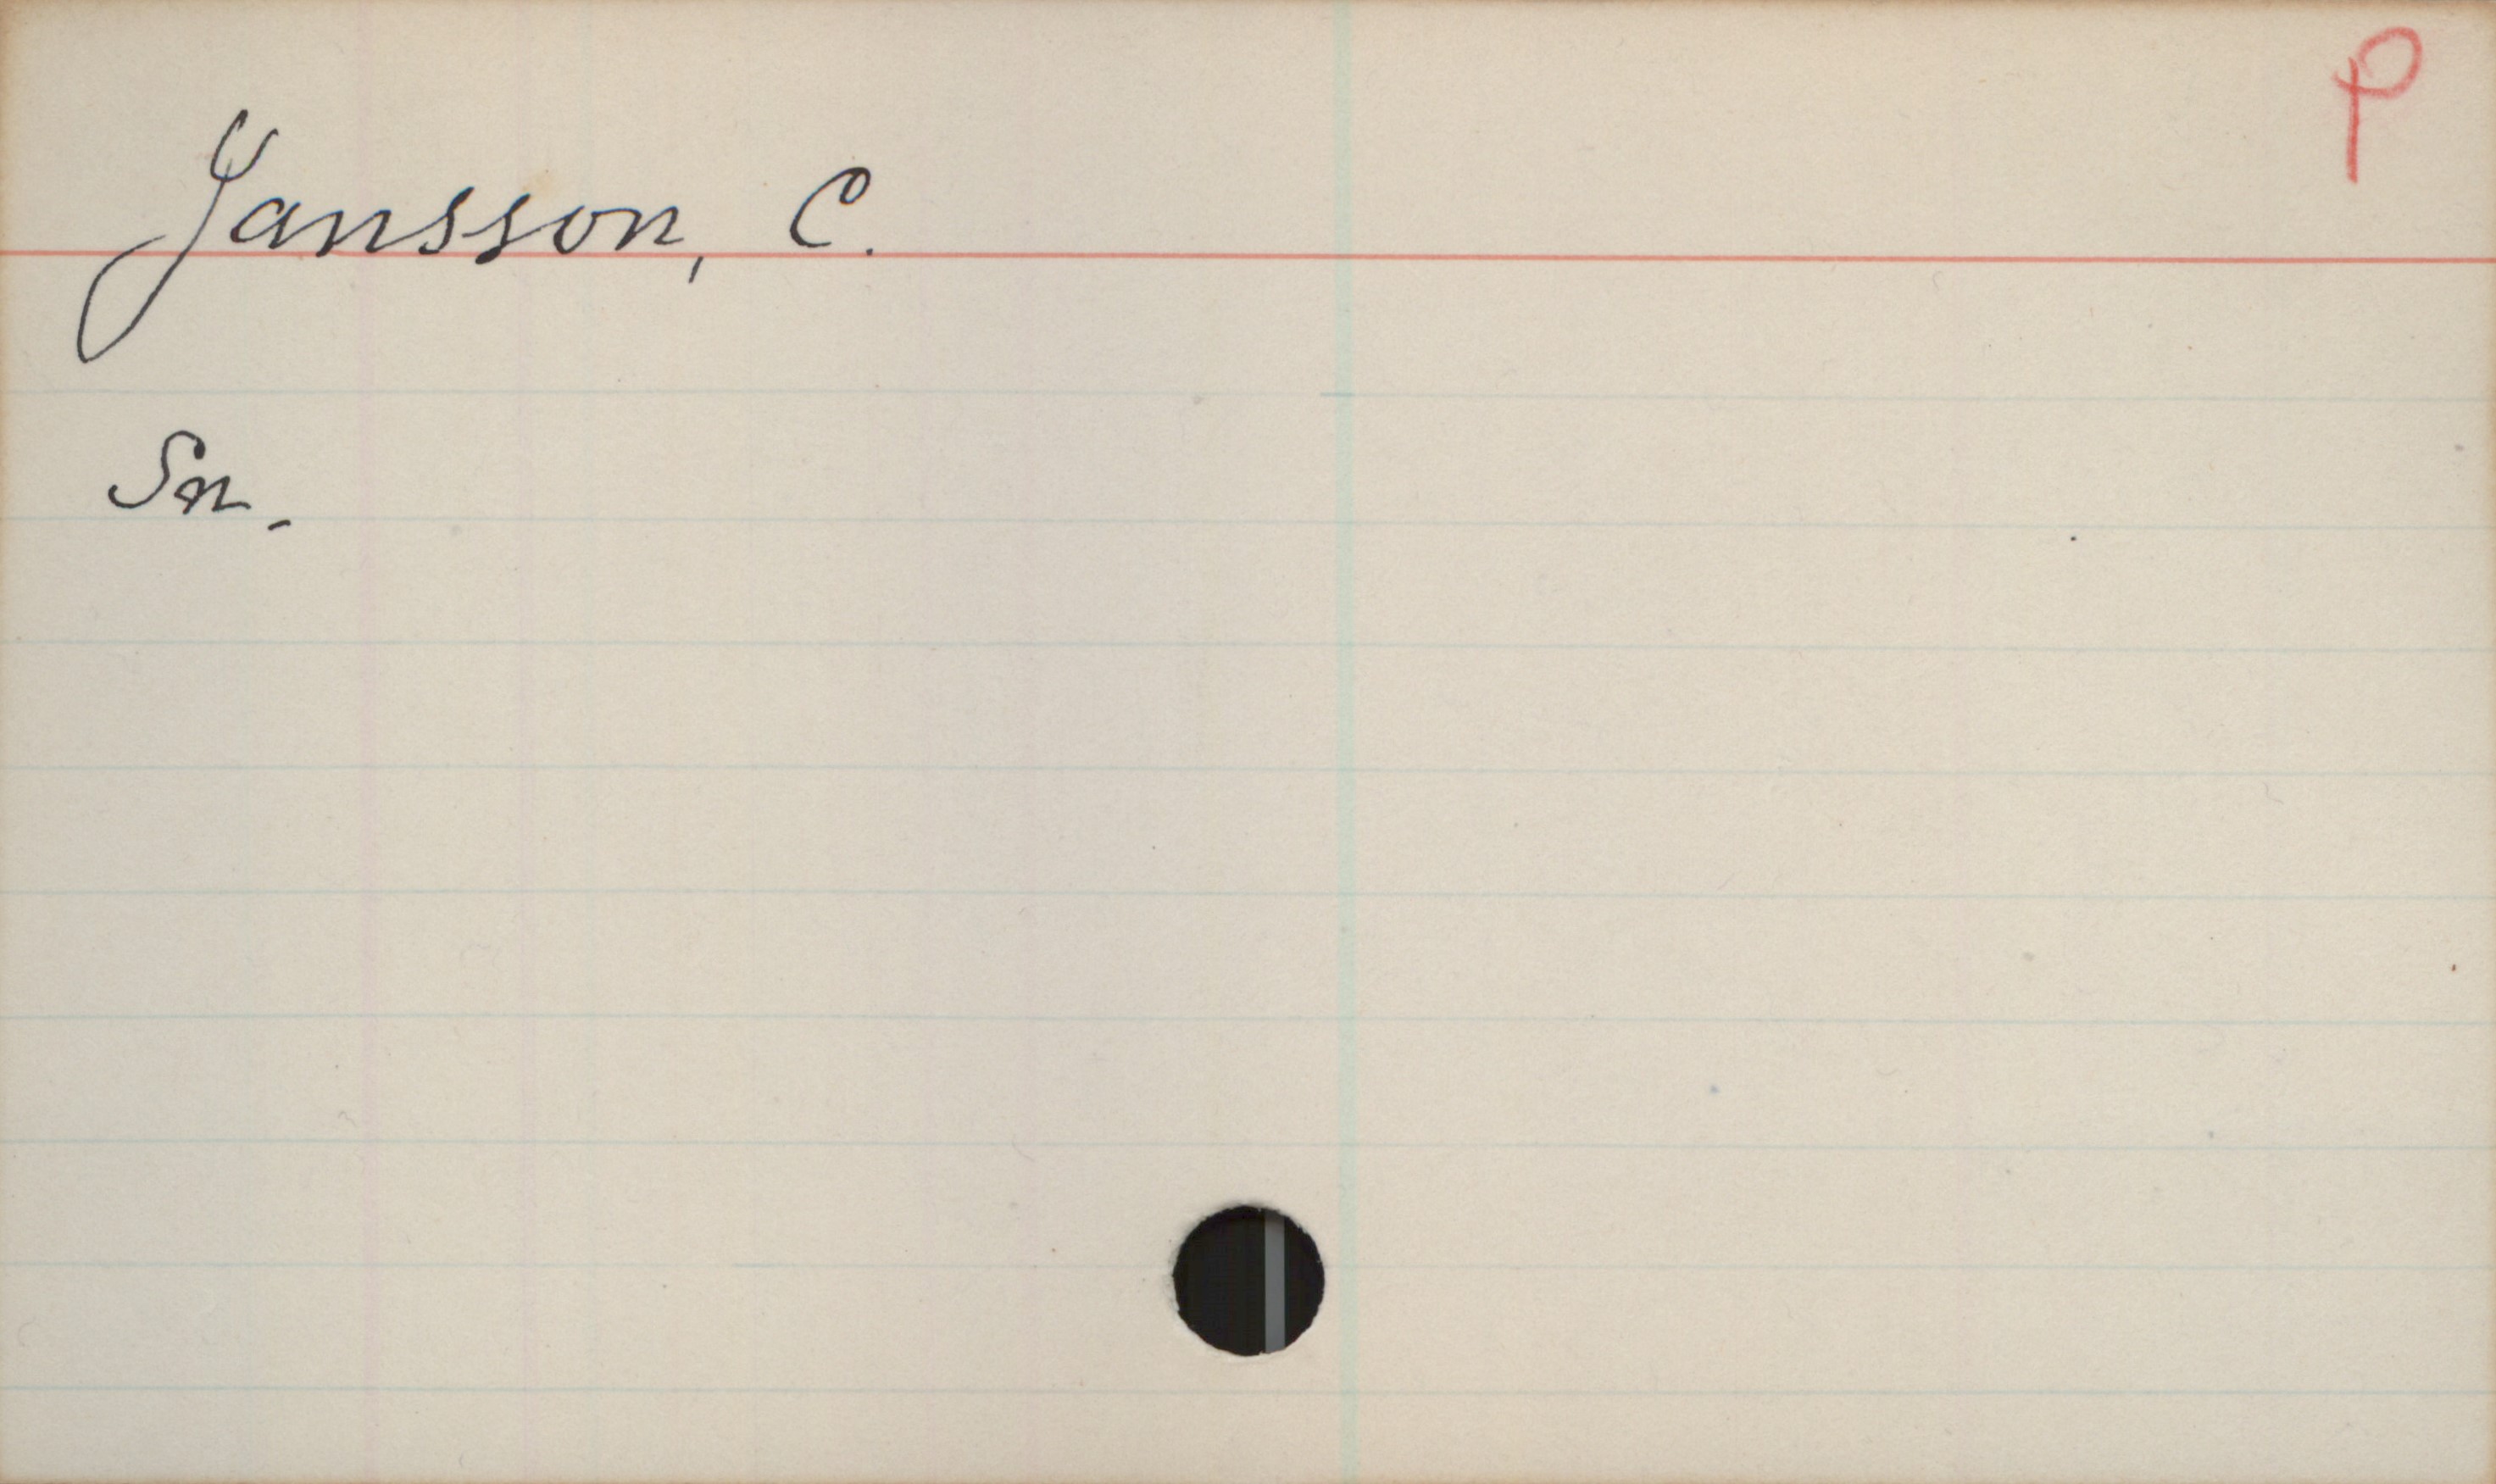 P
Jansson, C.
Sn.